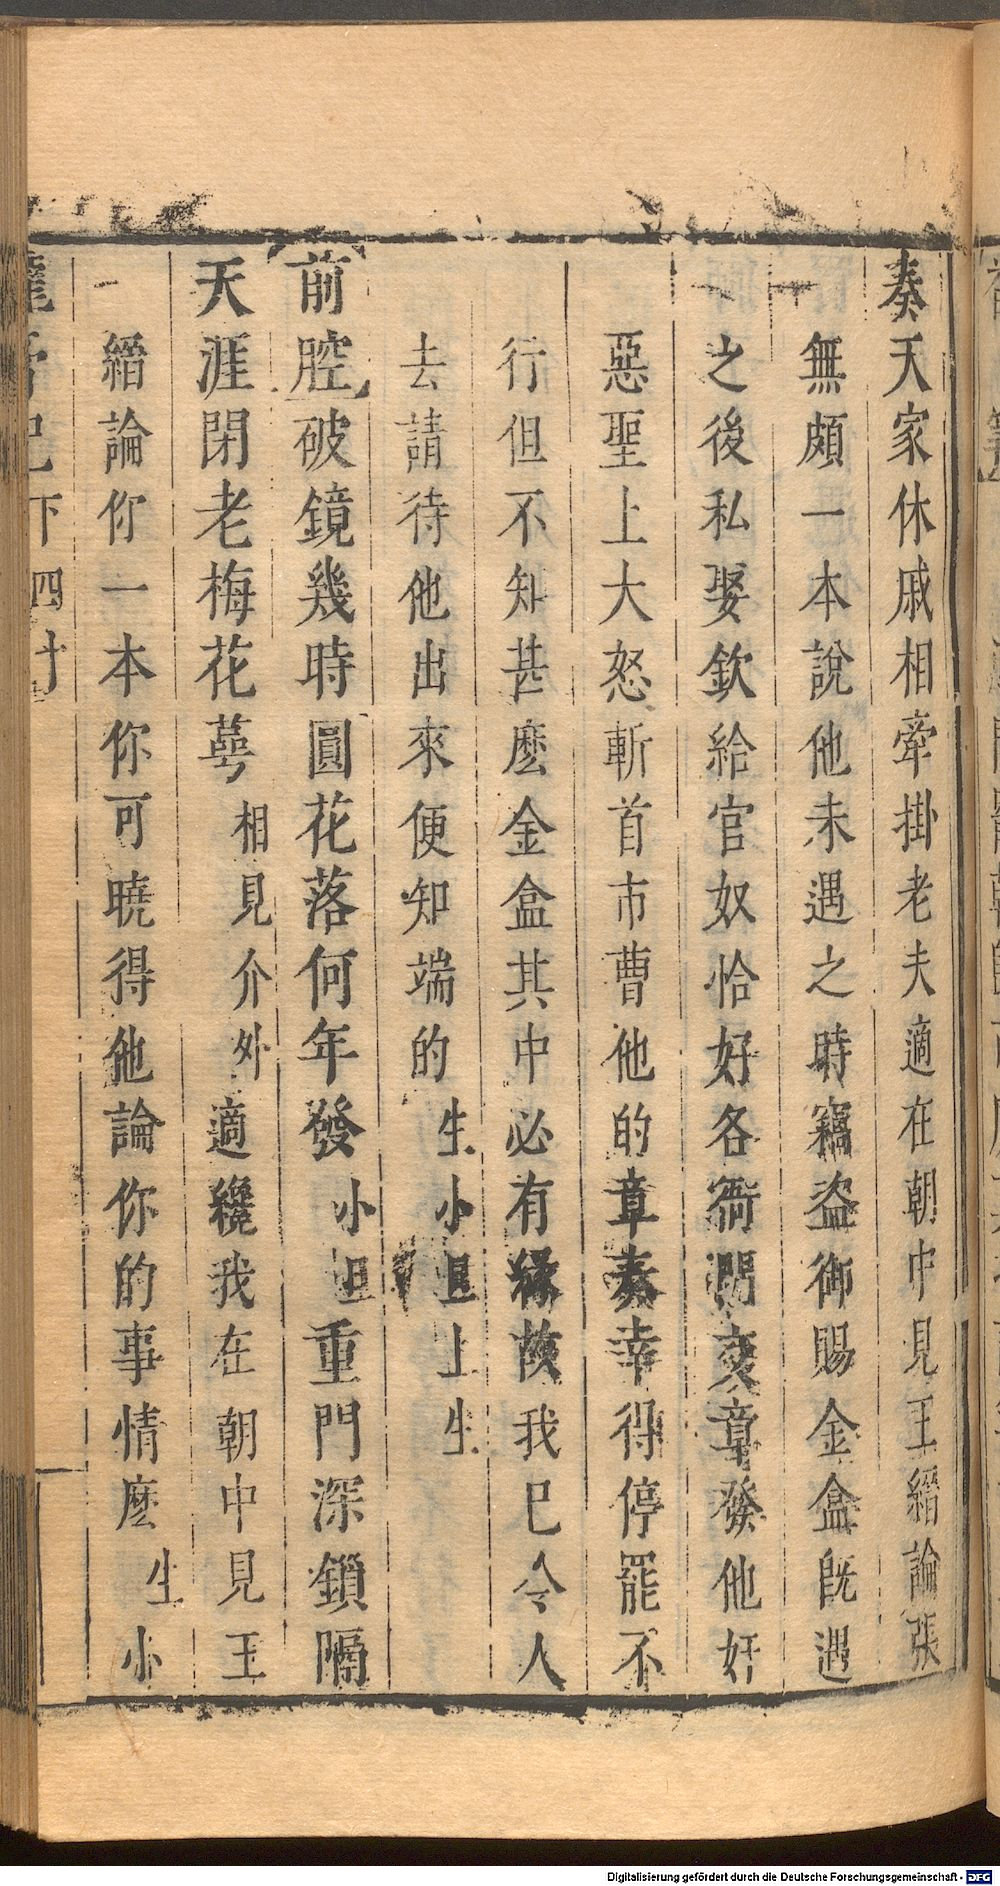 奏天家休戚相牽掛老夫適在朝中見王縉論張
無頗一本說他未遇之時竊盜御賜金盒旣遇
之後私娶欽給官奴恰好各衙門交章發他奸
惡聖上大怒斬首市曹他的章奏幸得停罷不
行但不知甚麽金盒其中必有緣故我已令人
去請待他出來便知端的生小旦上生
前腔破鏡幾時圓花落何年發小旦重門深鎖隔
天涯閉老梅花萼相見介外適纔我在朝中見王
縉論你一本你可曉得他論你的事情麽生小
龍膏記下四十
Digitalisierung gefördert durch die Deutsche Forschungsgemeinschaft - DFG